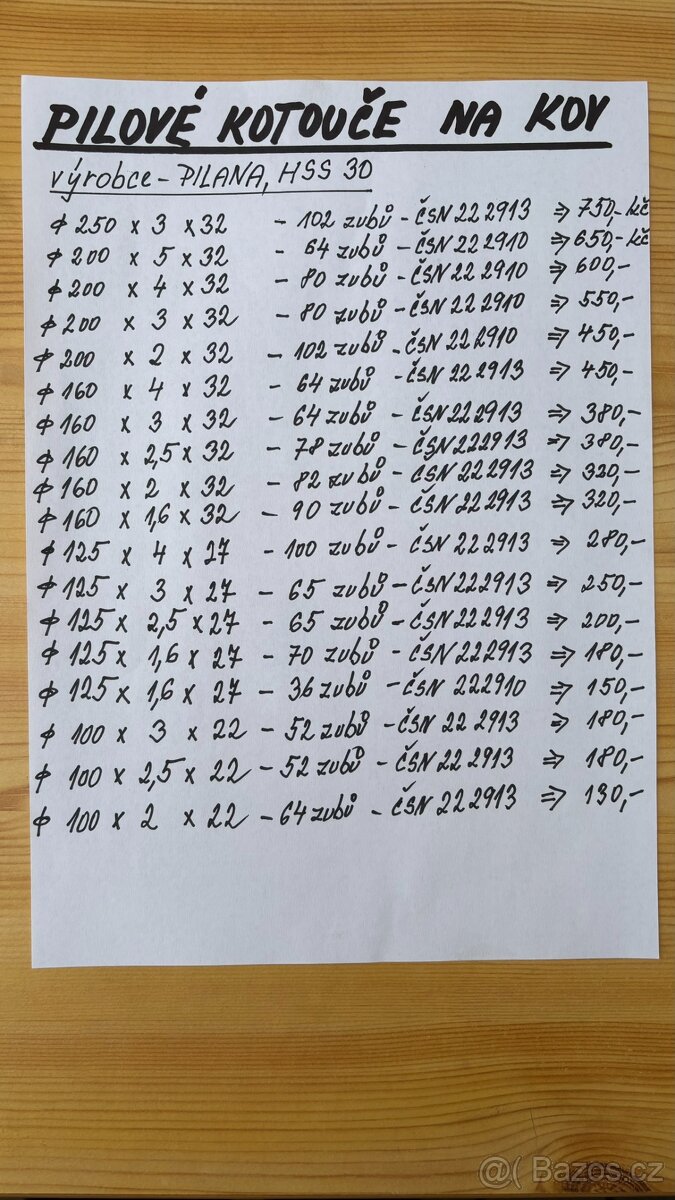 PILOVÉ KOTOUČE NA KOV
výrobce - PILANA, HSS 30
ϕ 250 x 3 x 32 - 102 zubů - ČSN 22 2913 ⇒ 750,- kč
ϕ 200 x 5 x 32 - 64 zubů - ČSN 22 2910 ⇒ 650,- kč
ϕ 200 x 4 x 32 - 80 zubů - ČSN 22 2910 ⇒ 600,-
ϕ 200 x 3 x 32 - 80 zubů - ČSN 22 2910 ⇒ 550,-
ϕ 200 x 2 x 32 - 102 zubů - ČSN 22 2910 ⇒ 450,-
ϕ 160 x 4 x 32 - 64 zubů - ČSN 22 2913 ⇒ 450,-
ϕ 160 x 3 x 32 - 64 zubů - ČSN 22 2913 ⇒ 380,-
ϕ 160 x 2,5 x 32 - 78 zubů - ČSN 22 2913 ⇒ 380,-
ϕ 160 x 2 x 32 - 82 zubů - ČSN 22 2913 ⇒ 320,-
ϕ 160 x 1,6 x 32 - 90 zubů - ČSN 22 2913 ⇒ 320,-
ϕ 125 x 4 x 27 - 100 zubů - ČSN 22 2913 ⇒ 280,-
ϕ 125 x 3 x 27 - 65 zubů - ČSN 22 2913 ⇒ 250,-
ϕ 125 x 2,5 x 27 - 65 zubů - ČSN 22 2913 ⇒ 200,-
ϕ 125 x 1,6 x 27 - 70 zubů - ČSN 22 2913 ⇒ 180,-
ϕ 125 x 1,6 x 27 - 36 zubů - ČSN 22 2910 ⇒ 150,-
ϕ 100 x 3 x 22 - 52 zubů - ČSN 22 2913 ⇒ 180,-
ϕ 100 x 2,5 x 22 - 52 zubů - ČSN 22 2913 ⇒ 180,-
ϕ 100 x 2 x 22 - 64 zubů - ČSN 22 2913 ⇒ 130,-
@( Bazos.cz